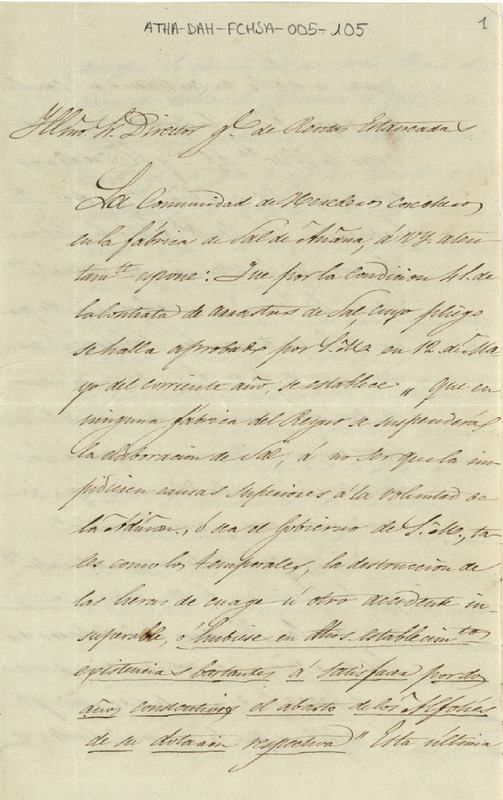 ATHA-DAH-FCMSA-005-105
1
Yllmo Sr. Director gl. de Rentas Estancadas
La Comunidad de Herederos cosecheros
en la fábrica de Sal de Añana, á V.Y. aten
tamte. espone: Que por la condicion 41. de
la contrata de arrastres de Sal cuyo pliego
se halla aprobado por S.M. en 12. de Ma
yo del corriente año, se establece „ que en
ninguna fábrica del Reyno se suspenderá
la elaboracion de Sal, á no ser que la im
pidiesen causas superiores á la voluntad de
la Admon., ó sea el Gobierno de S.M., ta
les como los temporales, la destruccion de
las heras de cuage ú otro accidente in
superable, ó hubiese en dhos. establecimtos
existencias bastantes á satisfacer por dos
años consecutivos el abasto de los Alfolíes
de su dotacion respectiva" Esta última